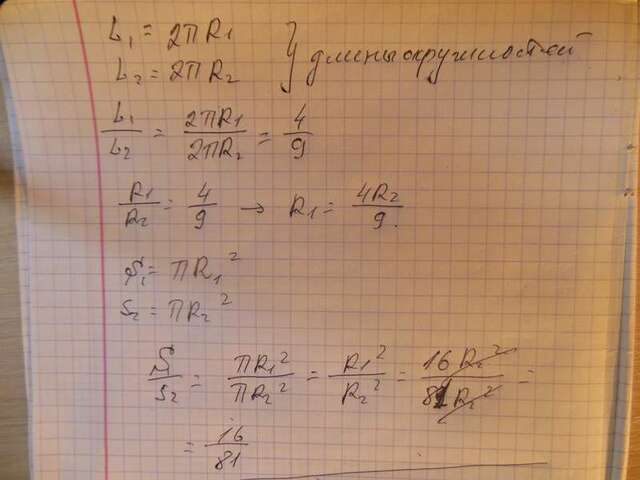 L₁ = 2πR₁ } длины окружностей
L₂ = 2πR₂
L₁/L₂ = 2πR₁/2πR₂ = 4/9
R₁/R₂ = 4/9 → R₁ = 4R₂/9.
S₁ = πR₁²
S₂ = πR₂²
S₁/S₂ = πR₁²/πR₂² = R₁²/R₂² = 16R₂²/81R₂² =
= 16/81